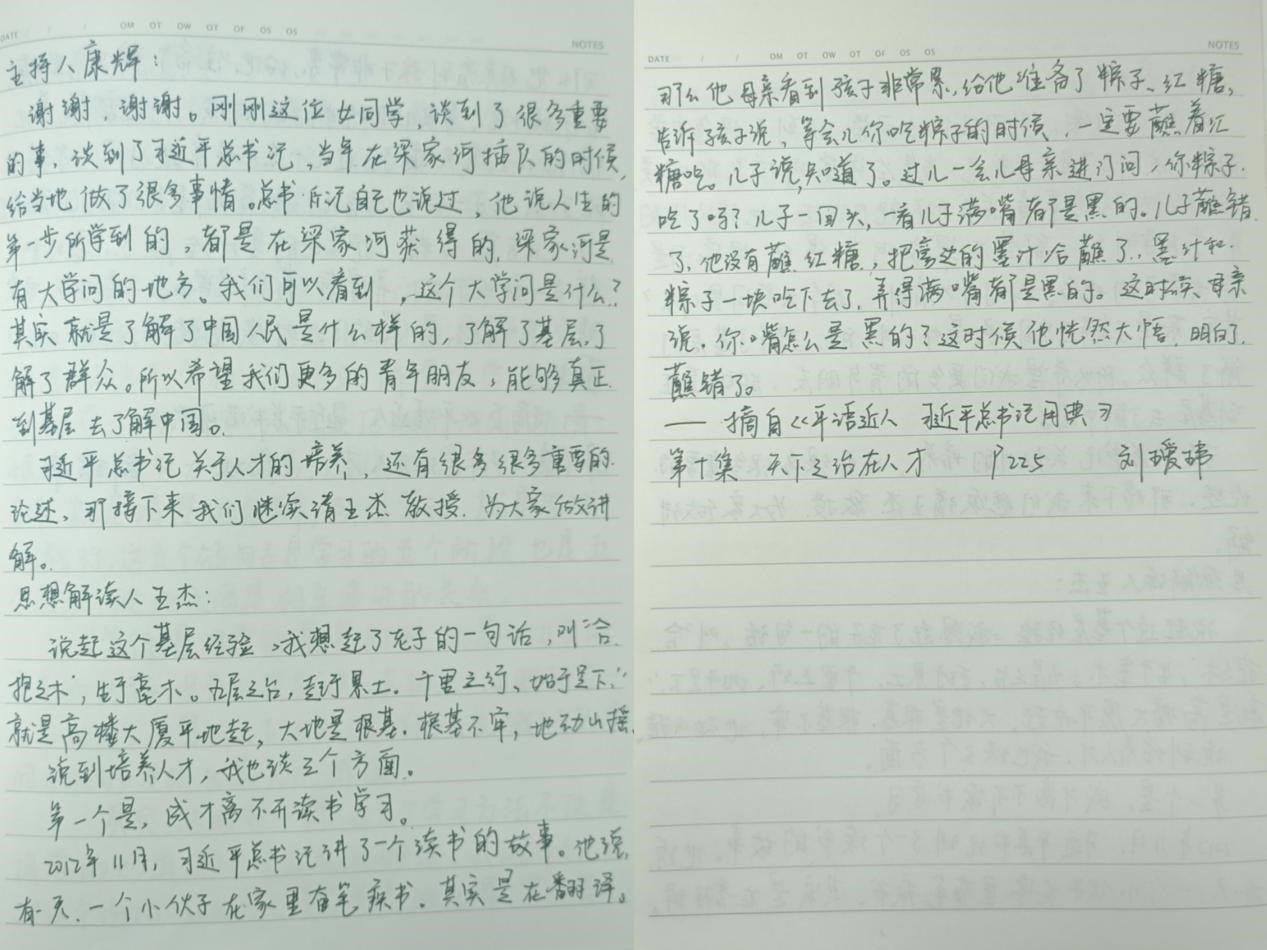 DATE / / OM OT OW OT OF OS OS NOTES
主持人康辉：
谢谢，谢谢。刚刚这位女同学，谈到了很多重要
的事，谈到了习近平总书记，当年在梁家河插队的时候，
给当地做了很多事情。总书记自己也说过，他说人生的
第一步所学到的，都是在梁家河获得的，梁家河是
有大学问的地方。我们可以看到，这个大学问是什么？
其实就是了解了中国人民是什么样的，了解了基层，了
解了群众。所以希望我们更多的青年朋友，能够真正
到基层去了解中国。
习近平总书记关于人才的培养，还有很多很多重要的
论述，那接下来我们继续请王杰教授，为大家做讲
解。
思想解读人王杰：
说起这个基层经验，我想起了老子的一句话，叫“合
抱之木，生于毫木。九层之台，起于累土。千里之行、始于足下”
就是高楼大厦平地起，大地是根基。根基不牢，地动山摇。
说到培养人才，我也谈三个方面。
第一个是，成才离不开读书学习。
2012年11月，习近平总书记讲了一个读书的故事。他说，
有一天，一个小伙子在家里奋笔疾书。其实是在翻译。
DATE / / OM OT OW OT OF OS OS NOTES
那么他母亲看到孩子非常累，给他准备了粽子、红糖，
告诉孩子说，等会儿你吃粽子的时候，一定要蘸着红
糖吃。儿子说，知道了。过儿一会儿母亲进门问，你粽子
吃了吗？儿子一回头，一看儿子满嘴都是黑的。儿子蘸错
了，他没有蘸红糖，把旁边的墨汁给蘸了，墨汁和
粽子一块吃下去了，弄得满嘴都是黑的。这时候母亲
说，你嘴怎么是黑的？这时候他恍然大悟，明白了，
蘸错了。
—— 摘自《平语近人 习近平总书记用典》
第八集 天下之治在人才 P225 刘瑷玮